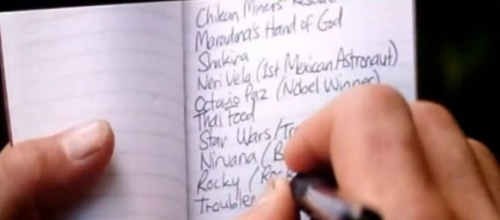 Chilean Miners' Rescue
Maradona's Hand of God
Shakira
Neri Vela (1st Mexican Astronaut)
Octavio Paz (Nobel Winner)
Thai Food
Star Wars/
Nirvana (
Rocky (
Troubler